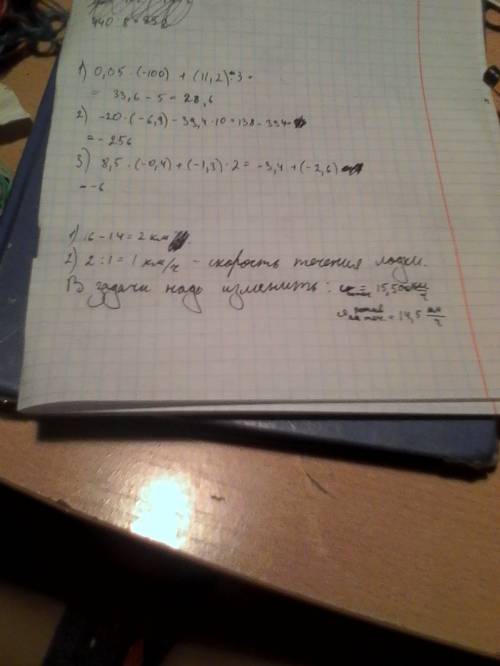 440·8=352
1) 0,05 · (-100) + (11,2) · 3 =
= 33,6 - 5 = 28,6
2) -20 · (-6,9) - 39,4 · 10 = 138 - 394
= - 256
3) 8,5 · (-0,4) + (-1,3) · 2 = -3,4 + (-2,6)
= -6
1) 16 - 14 = 2 км
2) 2 : 1 = 1 км/ч - скорость течения лодки.
В задачи надо изменить: = 15,50 км/ч
против теч. = 14,5 км/ч